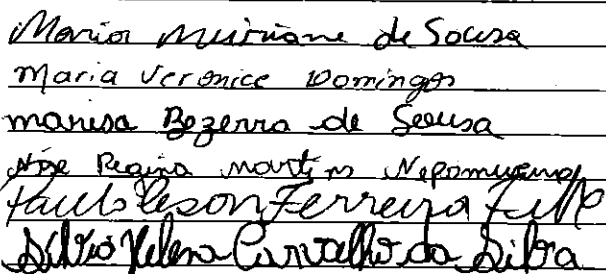 Maria Meiriane de Sousa
Maria Veronice Domingos
marisa Bezerra de Sousa
Regina martins Nepomuceno
Paulo Ferreira
Silvia Helena Carvalho da Silva